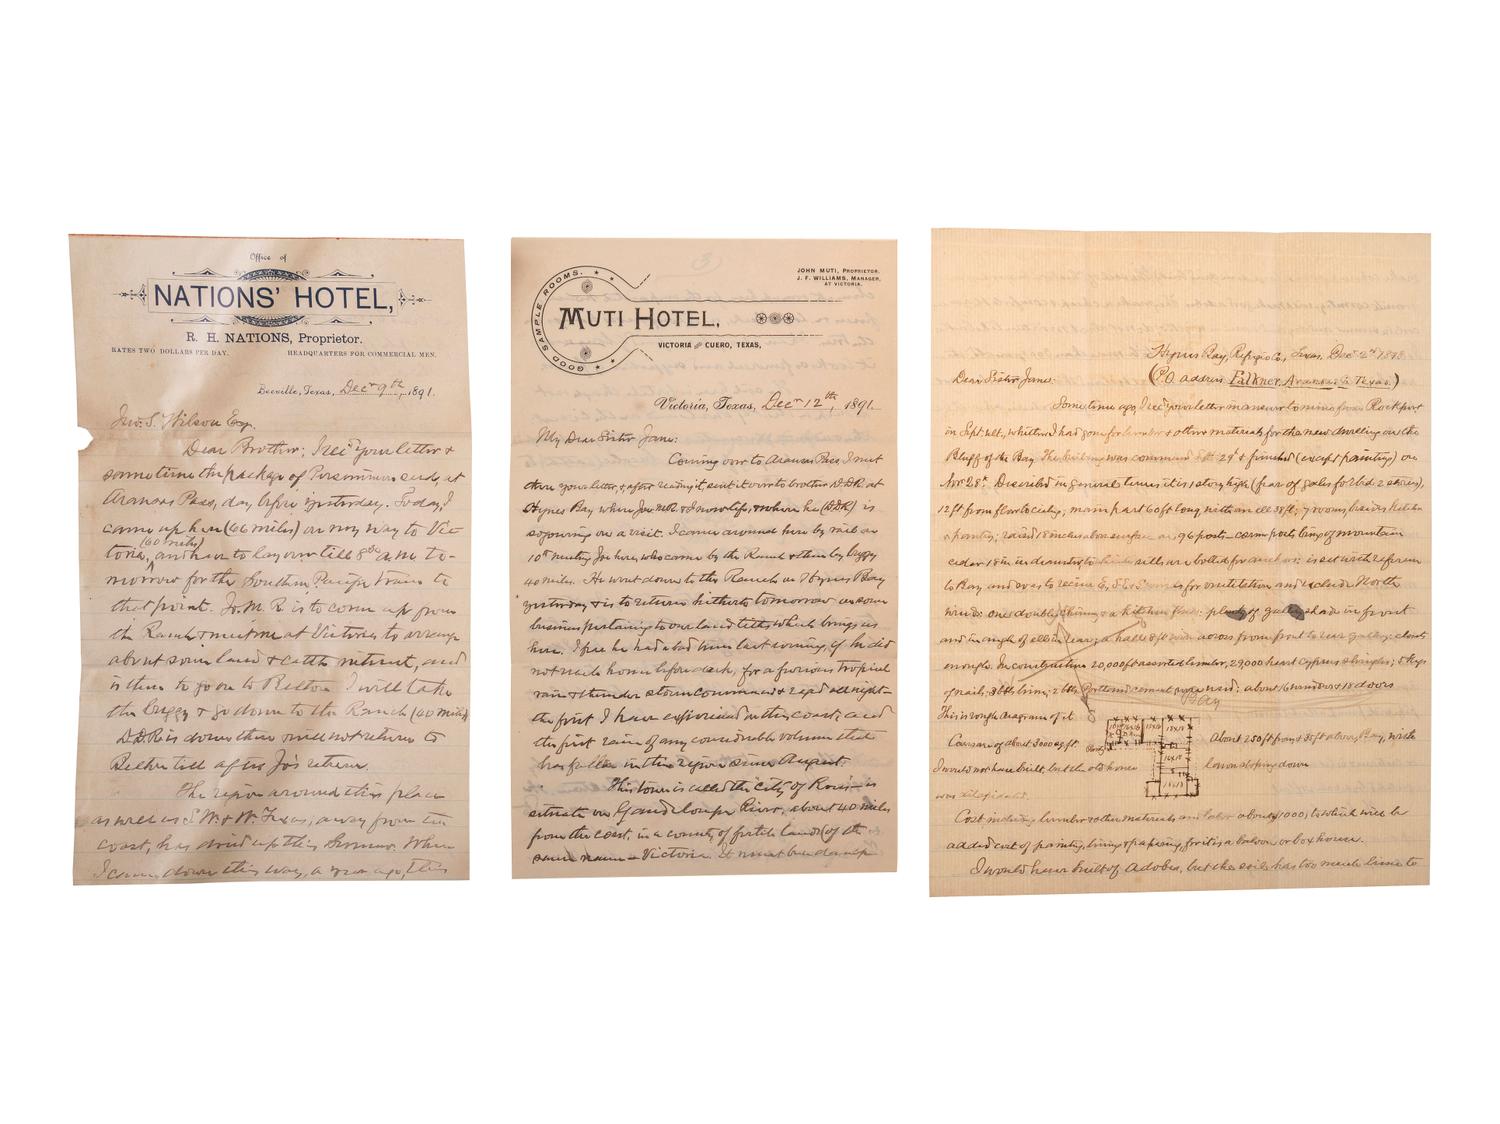 Office of
NATIONS' HOTEL,
R. H. NATIONS, Proprietor.
RATES TWO DOLLARS PER DAY. HEADQUARTERS FOR COMMERCIAL MEN.
Beeville, Texas, Decr 9th, 1891.
Jno. S. Wilson Esq.
Dear Brother; I recd your letter &
some time the package of Persimmon seeds, at
Aransas Pass, day before yesterday. Today, I
came up here (66 miles) on my way to Vic-
(60 miles)
toria, and have to lay over till 8 a.m. to-
morrow for the Southern Pacific train to
that point. Jo. M. R. is to come up from
the Ranch & meet me at Victoria to arrange
about some land & cattle interest, and
is then to go on to Belton. I will take
the buggy & go down to the Ranch (40 miles)
D.D.R. is down there & will not return to
Belton till after Jo's return.
The region around this place
as well as S.W. & W. Texas, away from the
coast, has dried up this Summer. When
I came down this way, a year ago, this
GOOD SAMPLE ROOMS.
JOHN MUTI, PROPRIETOR.
J. F. WILLIAMS, MANAGER,
AT VICTORIA.
MUTI HOTEL,
VICTORIA AND CUERO, TEXAS,
3
Victoria, Texas, Decr 12th, 1891.
My Dear Sister Jane:
Coming over to Aransas Pass, I met
there your letter, & after reading it, sent it over to brother D.D.R. at
Hynes Bay where Jno. M.R. & I now live, & where he (DDR) is
sojourning on a visit. I came around here by rail on
10th meeting Jo here, who came by the Ranch & then by buggy
40 miles. He went down to the Ranch on Hynes Bay
yesterday & is to return hither tomorrow on some
business pertaining to our land titles which brings us
here. I fear he had a bad time last evening, if he did
not reach home before dark, for a furious tropical
rain & thunder storm commenced & raged all night—
the first I have experienced on this coast, and
the first rain of any considerable volume that
has fallen in this region since August.
This town is called the "City of Roses"— is
situate on Guadeloupe River, about 40 miles
from the coast, in a county of fertile lands (of the
same name — Victoria. It must be damp
Hynes Bay, Refugio Co., Texas. Decr 2nd
Dear Sister Jane: (P.O. address Falkner, Aransas Co. Texas.)
Some time ago, I recd your letter in answer to mine from Rockport
in Sept. ult., whither I had gone for lumber & other materials for the new dwelling on the
Bluff of the Bay. The building was commenced 29th & finished (except painting) on
Novr 28th. Described in general terms it is 1 story high (fear of gales forbid 2 stories),
12 ft from floor to ceiling, main part 60 ft long, with an ell 38 ft; 7 rooms, besides kitchen
& pantry; raised 18 inches above surface on 96 posts — corner posts being of mountain
cedar 15 in. in diameter to which sills are bolted for anchors: is set with reference
to Bay, and so as to receive E, S.E. & S winds for ventilation and exclude North
winds: one double chimney & a kitchen flue: plenty of gallery shade in front
and in angle of ell in rear; a hall 8 ft wide across from front to rear gallery; closets
enough. In construction 20,000 ft assorted lumber, 29,000 heart Cypress shingles; 5 kegs
of nails; bbls lime; 2 bbls Portland cement were used: about 16 windows & 18 doors
Bay
This is rough diagram of it
Course of about 3000 sq. ft. About 250 ft from & 35 ft above Bay, with
I would not have built, but the old house lawn sloping down
was dilapidated.
Cost including lumber & other materials and labor about $1000, to which will be
added cost of painting, lining & papering, for it is a balloon or box house.
I would have built of Adobes, but the soil has too much lime to